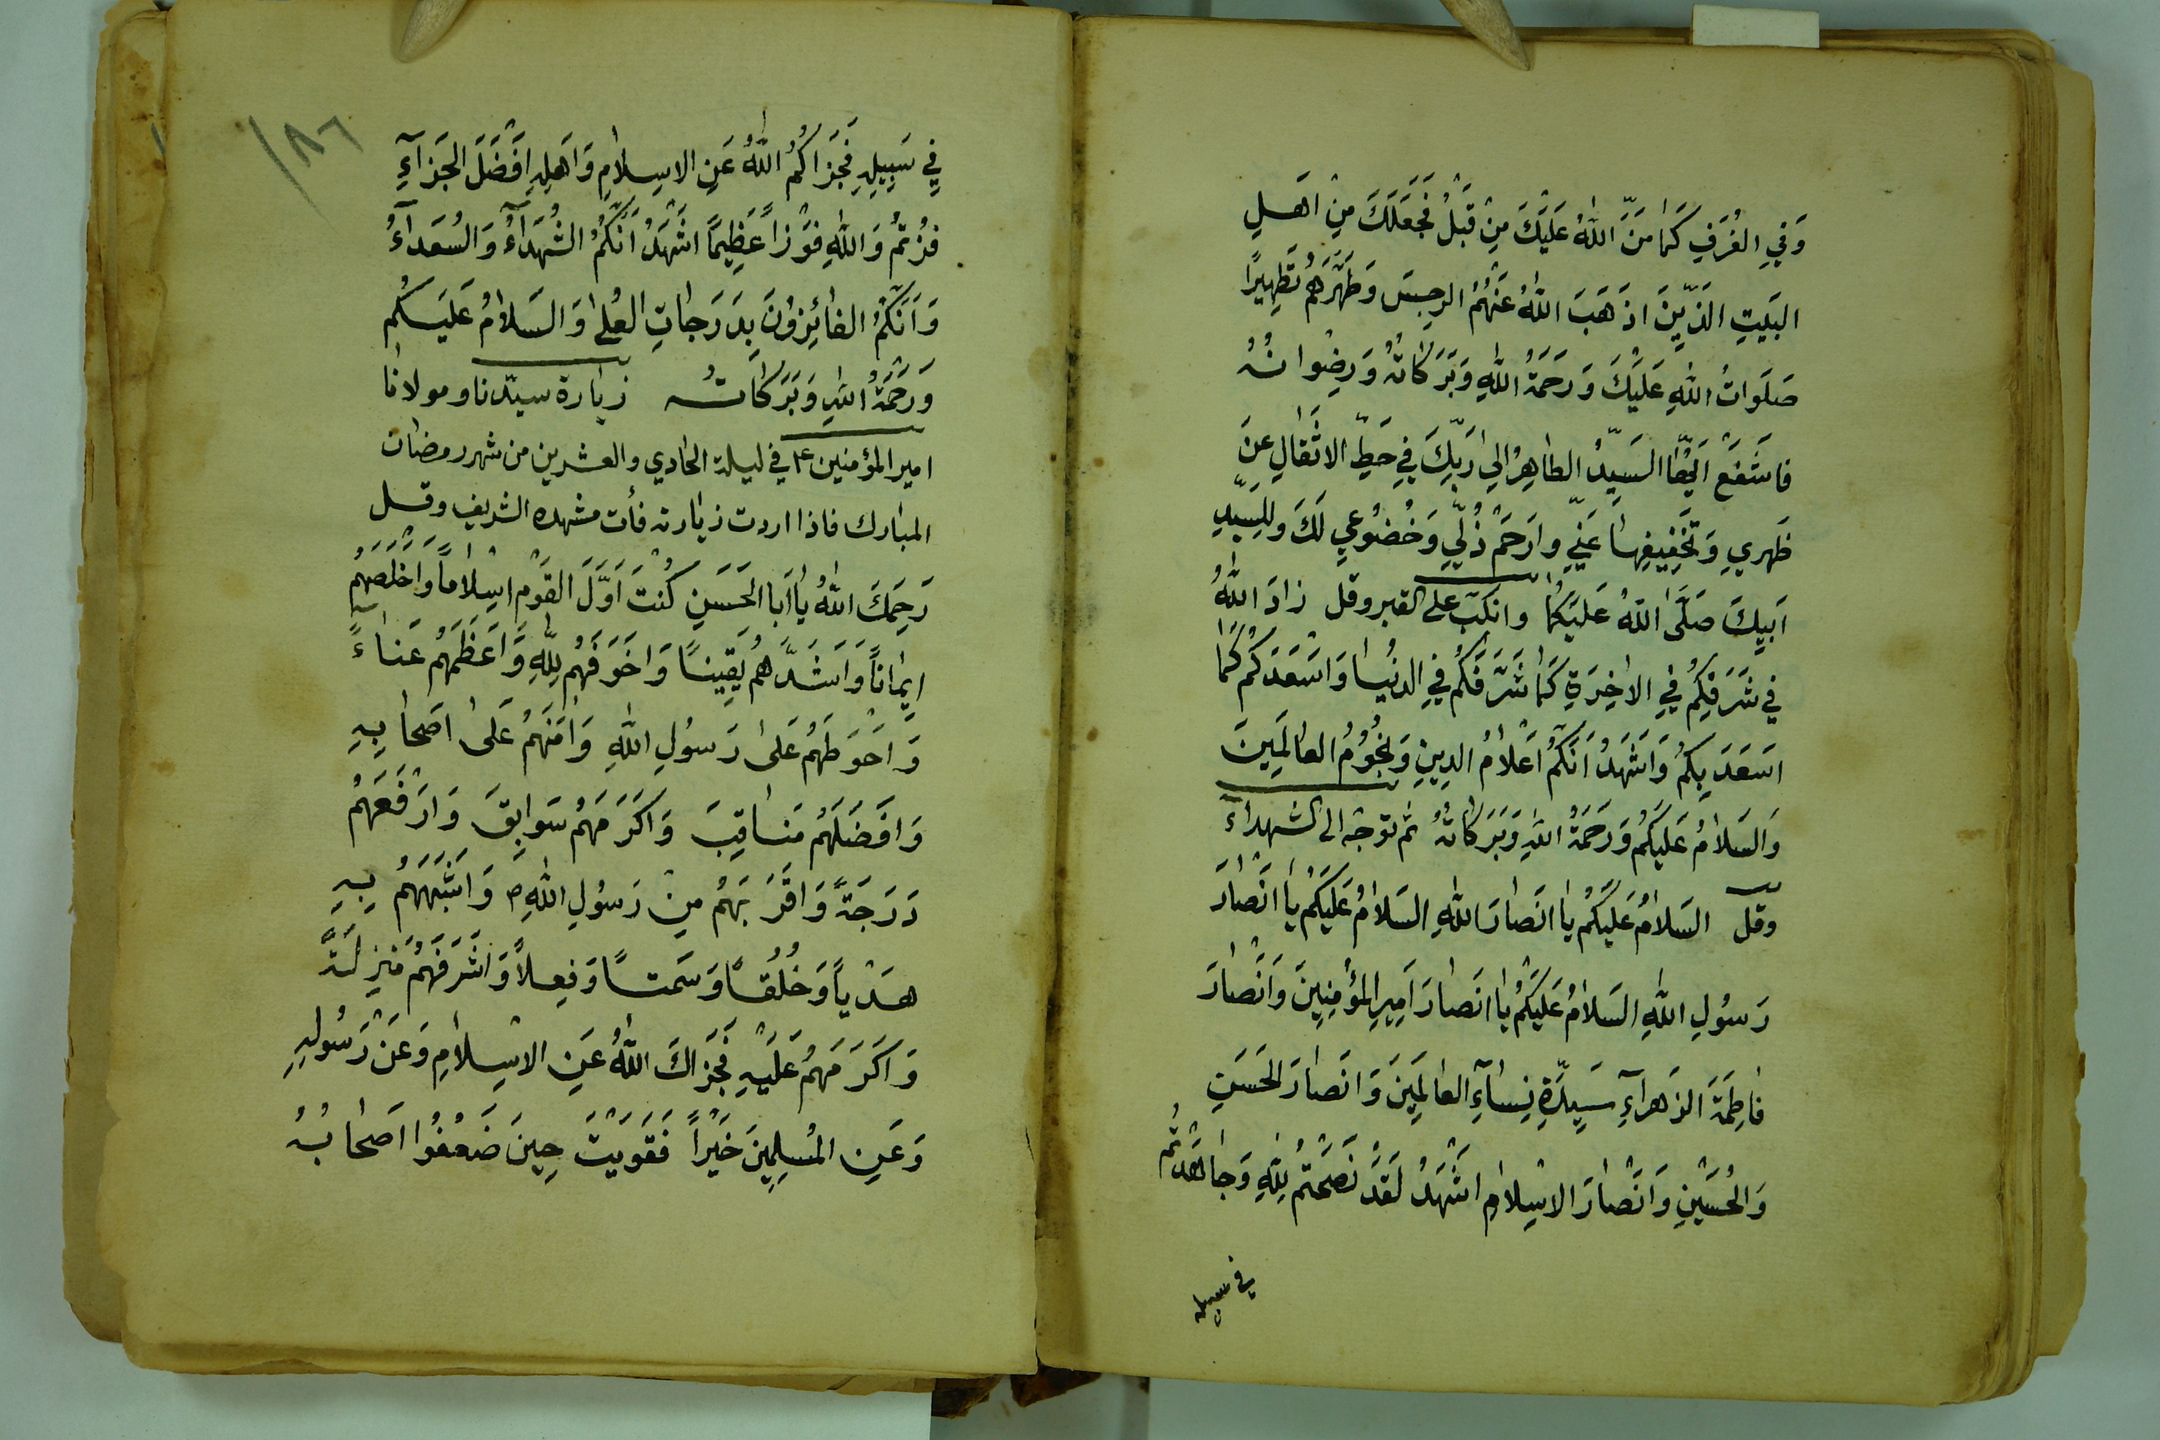 وَفِي الغُرَفِ كَمَا مَنَّ اللهُ عَلَيْكَ مِنْ قَبْلُ فَجَعَلَكَ مِنْ اَهْلِ
البَيْتِ الَّذِينَ اذَهَبَ اللهُ عَنْهُمُ الرِجسَ وَطَهَّرَهُمْ تَطْهِيرًا
صَلَوَاتُ اللهِ عَلَيْكَ وَرَحْمَةُ اللهِ وَبَرَكَاتُهُ وَرِضْوَانُهُ
فاشَفَعْ اَيُّهَا السَيِّدُ الطاهِرُ اِلى رَبِّكَ فِي حَطِّ الاثْقَالِ عَنْ
ظَهْرِي وَتَخْفِيفِهَا عَنِّي وارْحَمْ ذُلِّي وَخُضُوعِي لَكَ ولِلسيِّدِ
اَبِيكَ صَلَّى اللهُ عَلَيْكُمَا وانكبّ على القبر وقل زادَ اللهُ
فِي شَرَفِكُمْ فِي الاخِرَةِ كَمَا شَرَّفَكُمْ فِي الدنْيَا وَاَسْعَدَكُمْ كَمَا
اَسْعَدَ بِكُمْ وَاَشْهَدُ اَنَّكُمْ اَعْلامُ الدِينِ وَنُجُومُ العالَمِينَ
وَالسَلامُ عَلَيْكُمْ وَرَحْمَةُ اللهِ وَبَرَكَاتُهُ ثم توجّه الى الشهداء
وقل السَلامُ عَلَيْكُمْ يا اَنْصارَ اللهِ السَلامُ عَلَيْكُمْ يا اَنْصارَ
رَسُولِ اللهِ السَلامُ عَلَيْكُمْ يا اَنْصارَ اَمِيرِ المُؤْمِنِينَ وَاَنْصارَ
فاطِمَةَ الزَهراءِ سَيِّدَةِ نِساءِ العالَمِينَ وَاَنْصارَ الحَسَنِ
وَالحُسَيْنِ وَاَنْصارَ الاسْلامِ اَشْهَدُ لَقَدْ نَصَحْتُمْ لِلهِ وَجاهَدْتُمْ
في سبيله
١٨٦
فِي سَبِيلِهِ فَجَزَاكُمُ اللهُ عَنِ الاسِلامِ وَاَهْلِهِ اَفْضَلَ الجَزآءِ
فُزْتُمْ وَاللهِ فَوْزاً عَظِيمًا اشْهَدُ اَنَّكُمُ الشُهَدَآءُ وَالسُعَدآءُ
وَاَنَّكُمُ الفائِزُونَ بِدَرَجاتِ العُلى وَالسَلامُ عَلَيْكُمْ
وَرَحْمَةُ اللهِ وَبَرَكَاتُه زيارة سيّدنا ومولانا
امير المؤمنين ع في ليلة الحادي والعشرين من شهر رمضان
المبارك فاذا اردت زيارته فأت مشهده الشريف وقل
رَحِمَكَ اللهُ يا اَبَا الحَسَنِ كُنْتَ اَوَّلَ القَوْمِ اسْلاماً وَاَخْلَصَهُمْ
اِيماناً وَاَشَدَّهُمْ يَقِينًا وَاَخْوَفَهُمْ لِلهِ وَاَعْظَمَهُمْ عَناءً
وَاَحْوَطَهُمْ عَلى رَسُولِ اللهِ وَاَمَنَهُمْ عَلى اَصْحابِهِ
وَاَفْضَلَهُمْ مَناقِبَ وَاَكْرَمَهُمْ سَوابِقَ وَاَرْفَعَهُمْ
دَرَجَةً وَاَقْرَبَهُمْ مِنْ رَسُولِ اللهِ ص وَاَشْبَهَهُمْ بِهِ
هَدْياً وَخُلُقًا وَسَمْتًا وَفِعلاً وَاَشْرَفَهُمْ مَنْزِلَةً
وَاَكْرَمَهُمْ عَلَيْهِ فَجَزَاكَ اللهُ عَنِ الاسْلامِ وَعَنْ رَسُولِهِ
وَعَنِ المُسْلِمِينَ خَيْراً فَقَوَيْتَ حِينَ ضَعُفُوا اَصْحَابُهُ